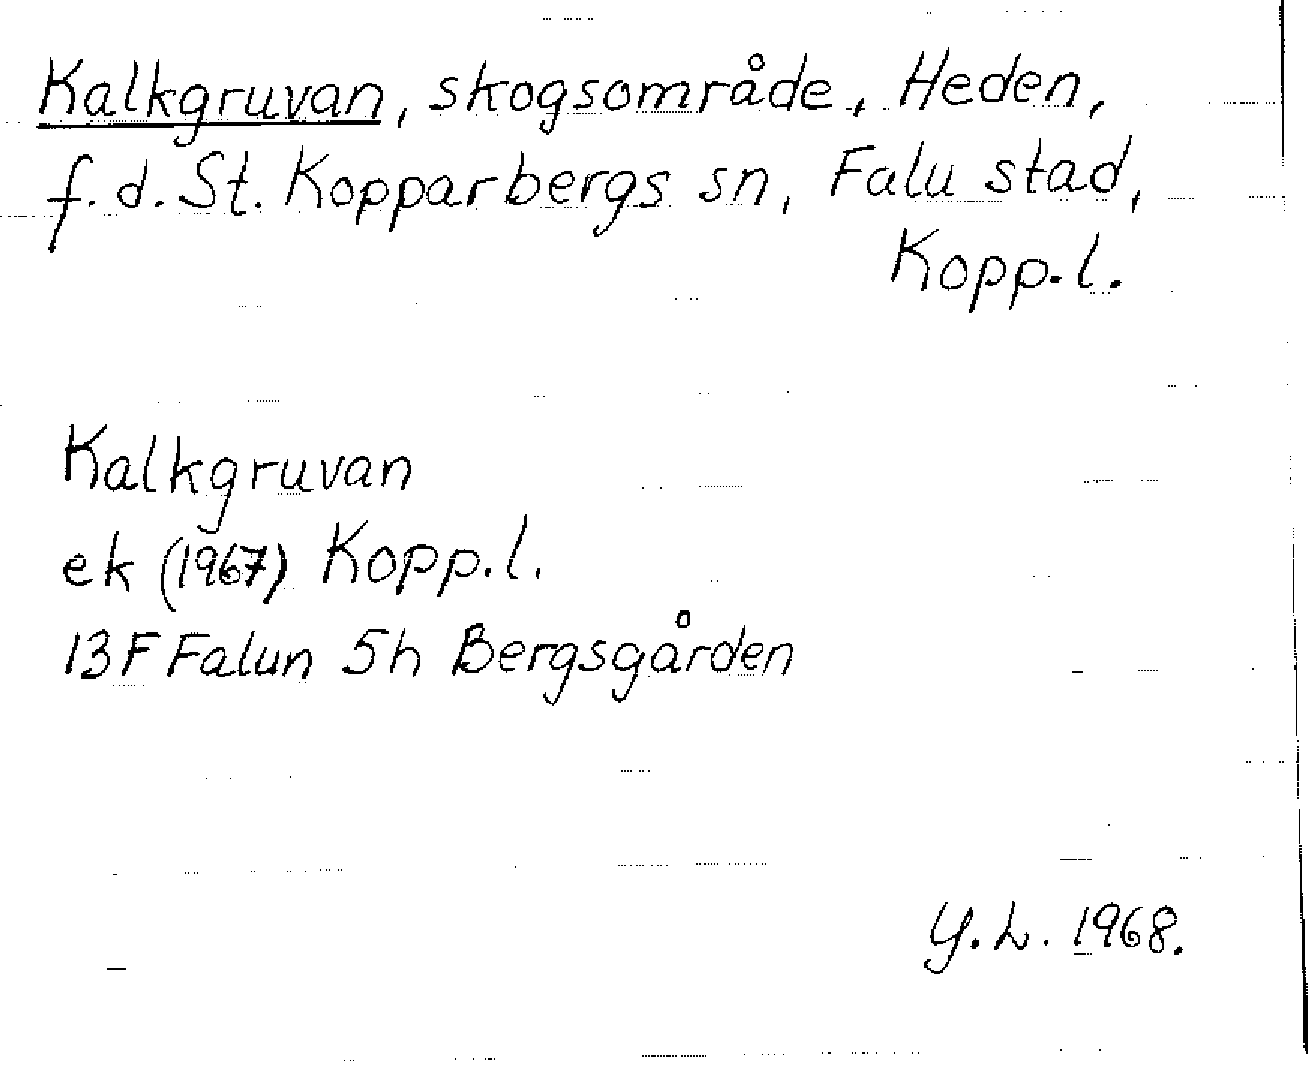 Kalkgruvan, skogsområde, Heden,
f.d. St. Kopparbergs sn, Falu stad,
Kopp.l.
Kalkgruvan
ek (1967) Kopp.l.
13F Falun 5h Bergsgården
Y.L. 1968.